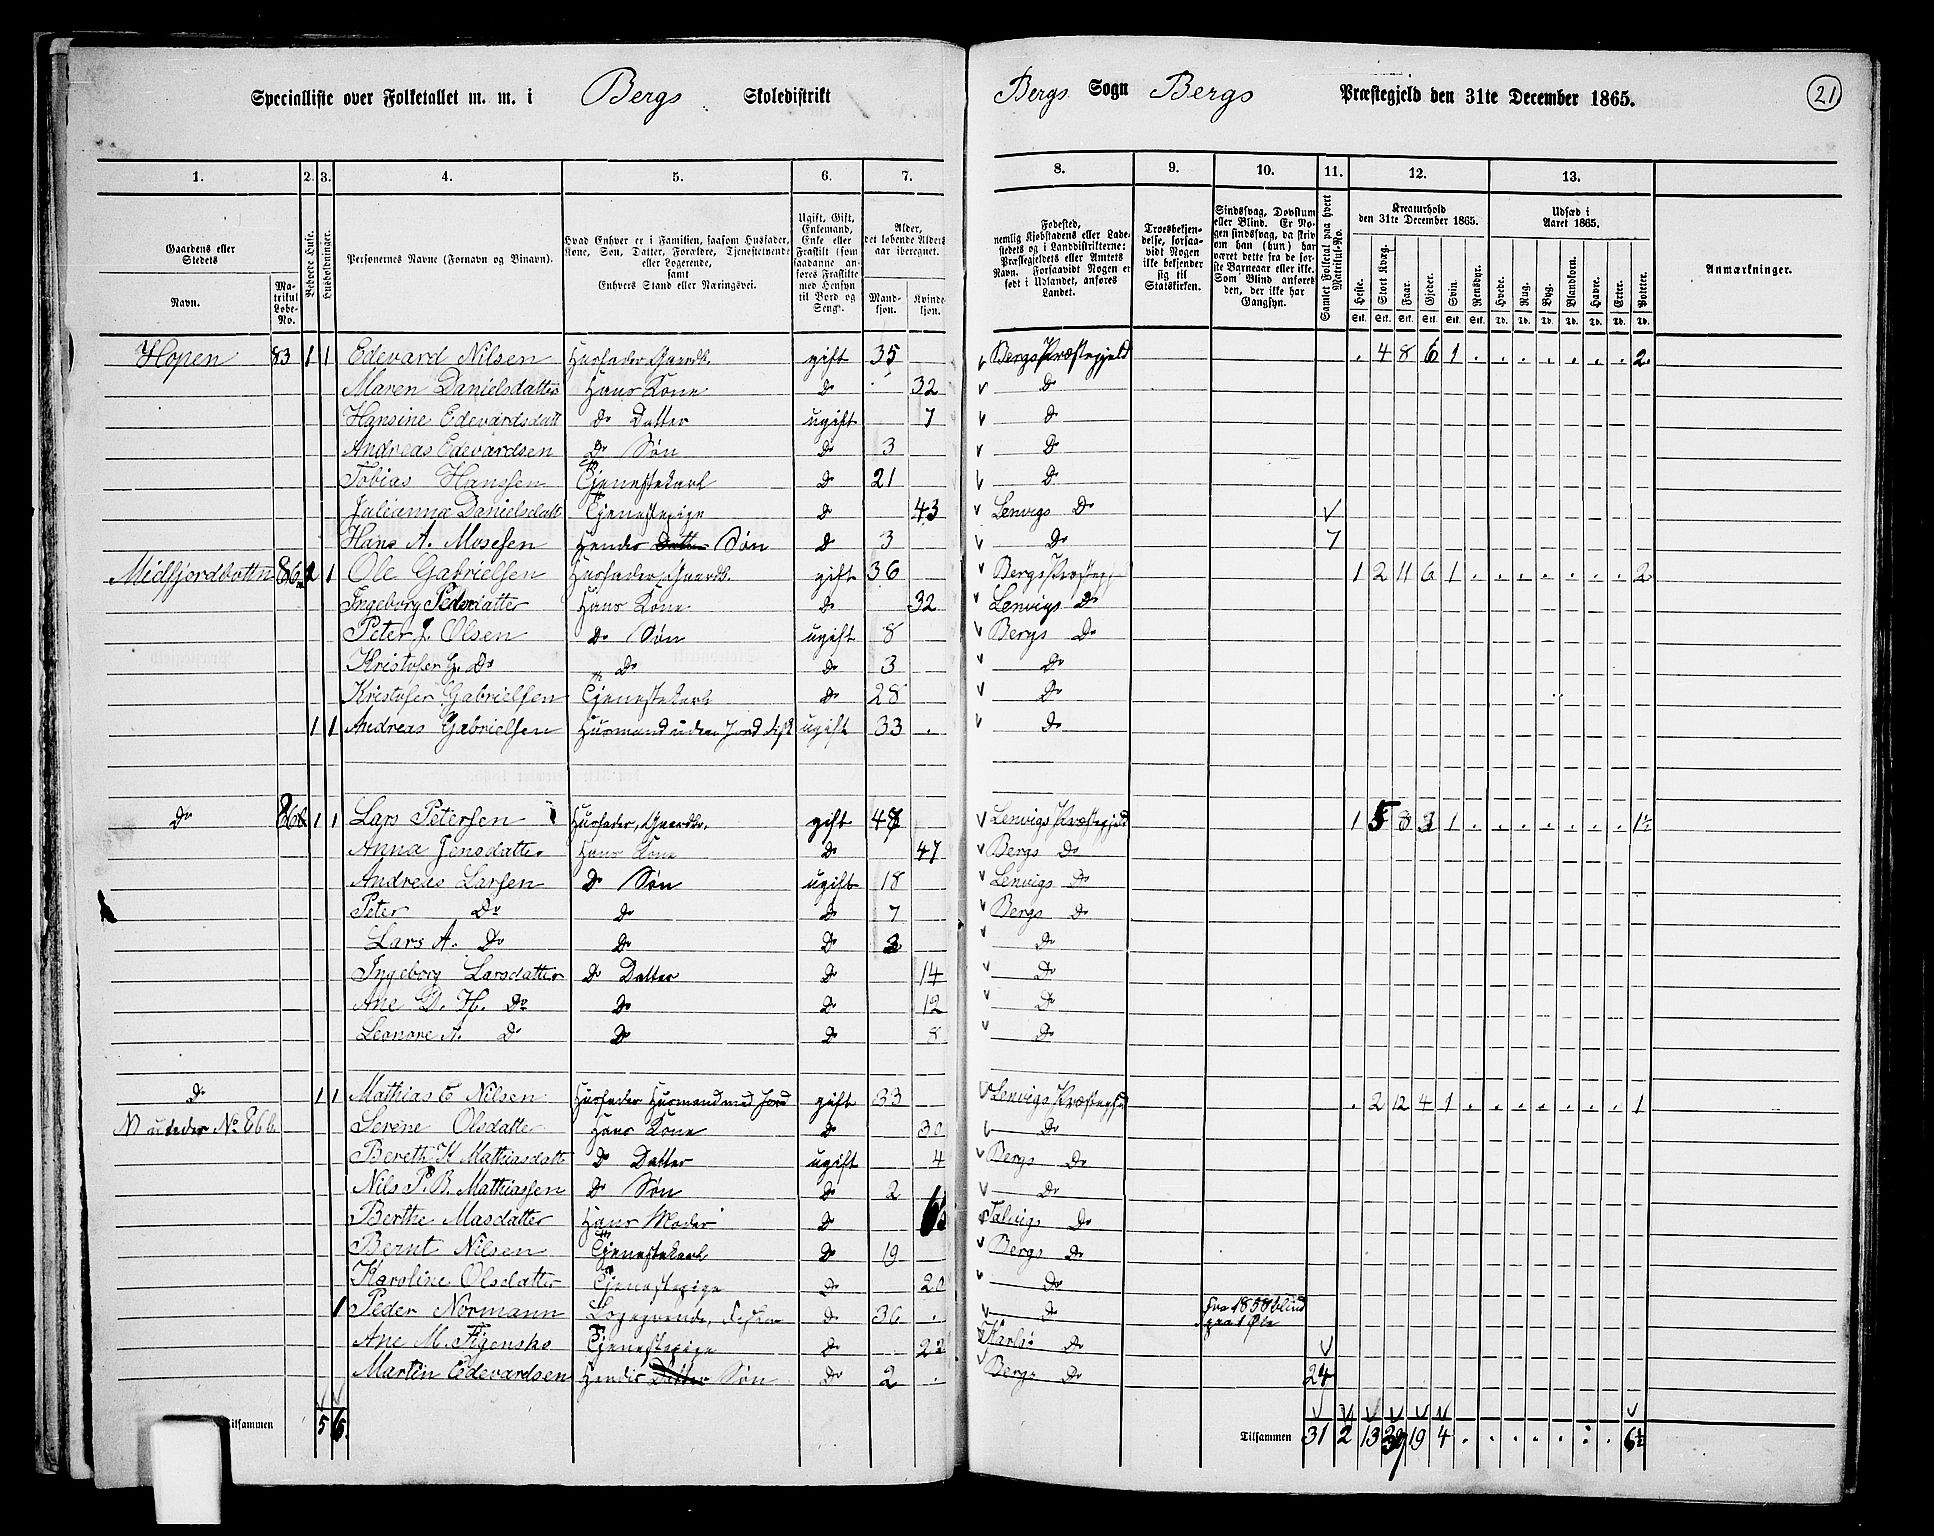 Specialliste over Folketallet m. m. i Bergs Skoledistrikt Bergs Sogn Bergs Præstegjeld den 31te December 1865. 21.
1. 2. 3. 4. 5. 6. 7. 8. 9. 10. 11. 12. 13.
Gaardens eller Stedets Navn. Matrikul Løbe-No. Beboede Huse. Husholdninger. Personernes Navne (Fornavn og Binavn).
Hvad Enhver er i Familien, saasom Husfader, Kone, Søn, Datter, Forældre, Tjenestetyende eller Logerende, samt Enhvers Stand eller Næringsvei.
Ugift, Gift, Enkemand, Enke eller Fraskilt (som saadanne anføres Fraskilte med Hensyn til Bord og Seng).
Alder, det løbende Alders-aar iberegnet. Mandkjøn. Kvindekjøn.
Fødested, nemlig Kjøbstadens eller Ladestedets og i Landdistrikterne: Præstegjeldets eller Amtets Navn. Forsaavidt Nogen er født i Udlandet, anføres Landet.
Troesbekjendelse, forsaavidt Nogen ikke bekjender sig til Statskirken.
Sindssvag, Døvstum eller Blind. Er Nogen sindssvag, da skrives om han (hun) har været dette fra de første Barneaar eller ikke. Som Blind anføres den, der ikke har Gangsyn.
Samlet Folketal paa hvert Matrikul-No.
Kreaturhold den 31te December 1865. Heste. Stort Kvæg. Faar. Gjeder. Svin. Rensdyr.
Udsæd i Aaret 1865. Hvede. Rug. Byg. Blandkorn. Havre. Erter. Poteter.
Anmærkninger.
Stk. Stk. Stk. Stk. Stk. Stk. Td. Td. Td. Td. Td. Td. Td.
Hopen 83 1 1 Edevard Nilsen Husfader Gaardb. gift 35 Bergs Præstegjeld . 4 8 6 1 . . . . . . . 2
Maren Danielsdatter Hans Kone Do 32 Do
Hansine Edevardsdatt Do Datter ugift 7 Do
Andreas Edevardsen Do Søn Do 3 Do
Tobias Hanssen Tjenestekarl Do 21 Do
Julianna Danielsdatt Tjenestepige Do 43 Lenvigs Do
Hans A. Mosesen Hendes Datter Søn Do 3 Do 7
Midfjordbottn 86a 2 1 Ole Gabrielsen Husfader, Gaardb. gift 36 Bergs Præstegj 1 2 11 6 1 . . . . . . . 2
Ingeborg Pedersdatter Hans Kone Do 32 Lenvigs Do
Peter J. Olsen Do Søn ugift 8 Bergs Do
Kristofer G. Do Do Do 3 Do
Kristofer Gabrielsen Tjenestekarl Do 28 Do
1 1 Andreas Gabrielsen Husmand uden Jord ugift 33 . Do
Do 86b 1 1 Lars Petersen Husfader, Gaardbr. gift Lenvigs Præstegjeld 1 5 8 3 1 . . . . . . . 1½
Anna Jensdatter Hans Kone Do 47 Bergs Do
Andreas Larsen Do Søn ugift 18 Lenvigs Do
Peter Do Do Do 7 Bergs Do
Lars A. Do Do Do Do
Ingeborg Larsdatter Do Datter Do 14 Do
Ane D. H. Do Do Do 12 Do
Leonore A. Do Do Do 8 Do
Do 1 1 Mathias E Nilsen Husfader Husmand med Jord gift 33 Lenvigs Præstegjeld . 2 12 4 1 . . . . . . . 1
No 86b Serene Olsdatter Hans Kone Do 30 Do
Bereth K Mathiasdatt Do Datter ugift 4 Bergs Do
Nils P. B. Mathiassen Do Søn Do 2 Do
Berthe Masdatter Hans Moder Do Talvigs Do
Bernt Nilsen Tjenestekarl Do 19 Bergs Do
Karoline Olsdatter Tjenestepige Do 20 Do
1 Peder Normann Logerende, Fisker Do 36 . Do fra 1858 blind
Ane M. Figenskо Tjenestepige Do 22 Karlsø Do
Martin Edevardsen Hendes Datter Søn Do 2 . Bergs Do 24
Tilsammen 5 6. Tilsammen 31 2 13 39 19 4 . . . . . . . 6½